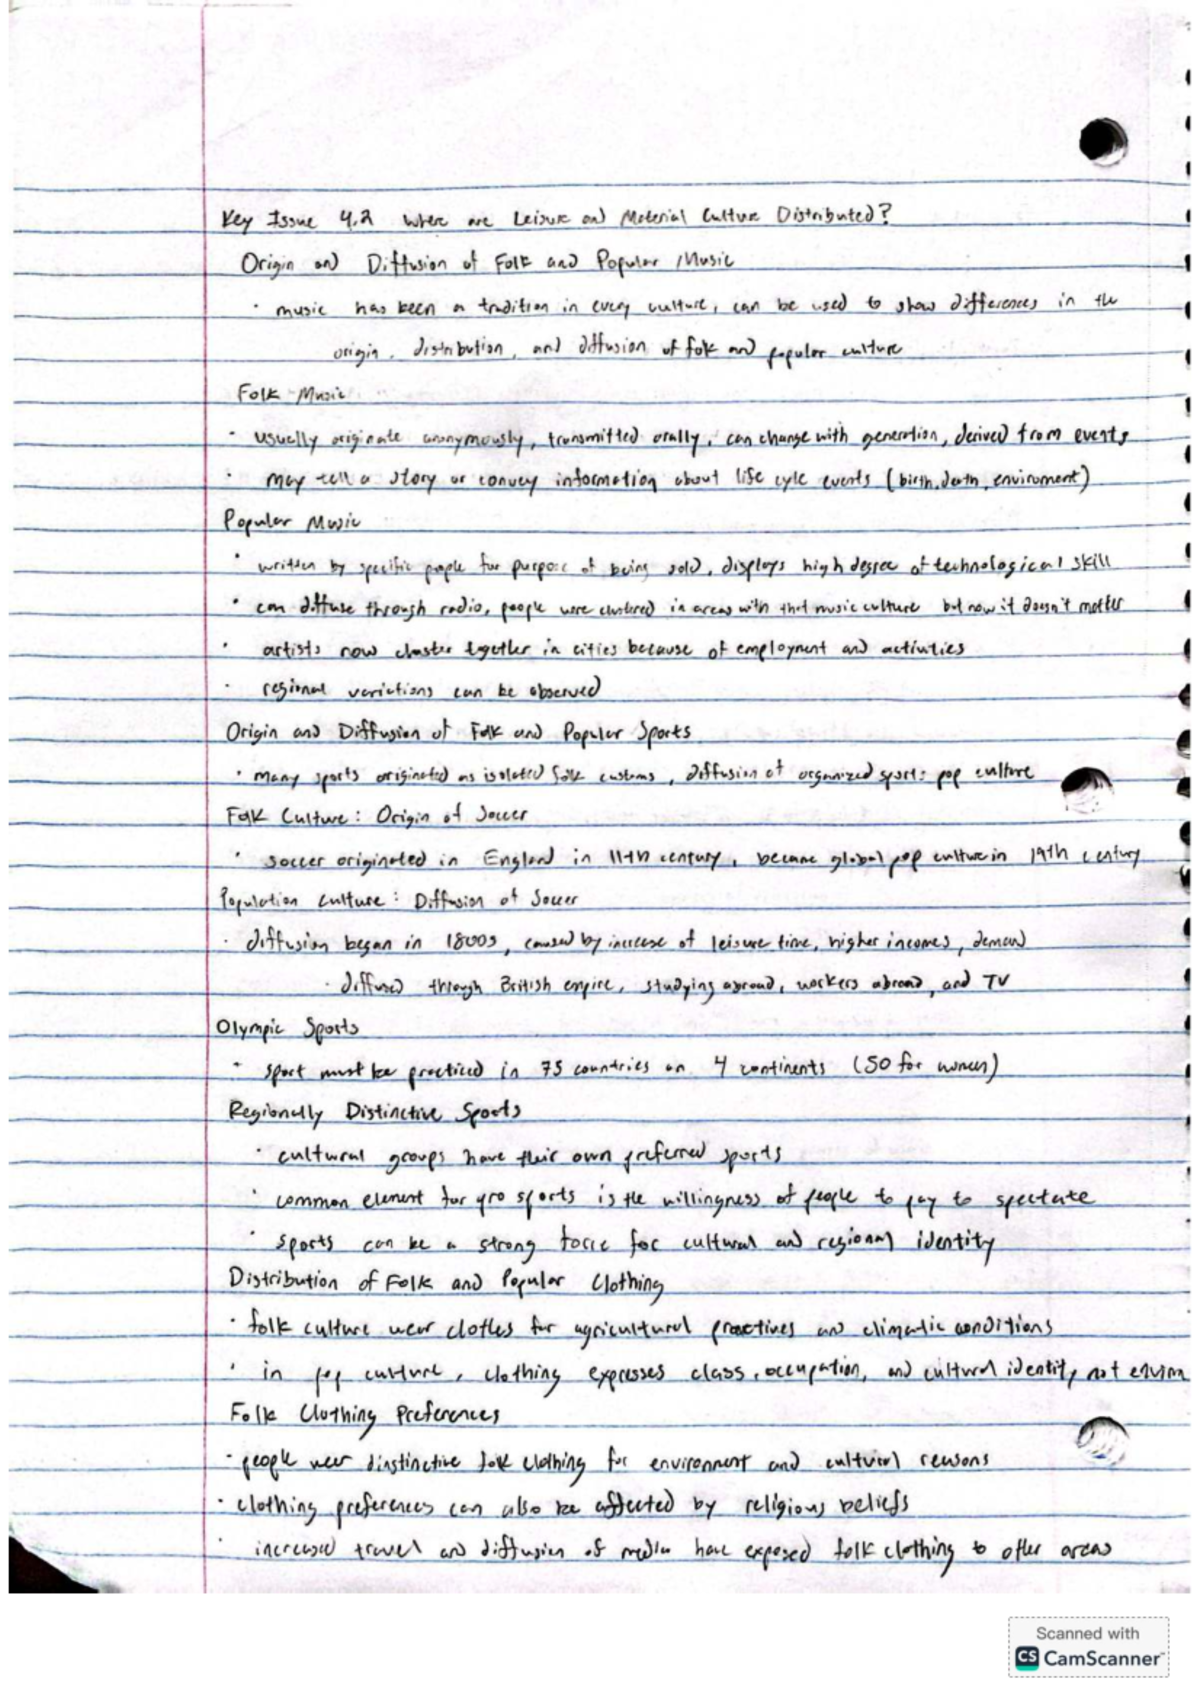 Key Issue 4.2 Where are Leisure and Material Culture Distributed?
Origin and Diffusion of Folk and Popular Music
· music has been a tradition in every culture, can be used to show differences in the
origin, distribution, and diffusion of folk and popular culture
Folk Music
· usually originate anonymously, transmitted orally, can change with generation, derived from events
· may tell a story or convey information about life cyle events (birth, death, enviroment)
Popular Music
· written by specific people for purpose of being sold, displays high degree of technological skill
· can diffuse through radio, people were clustered in areas with that music culture but now it doesn't matter
· artists now cluster together in cities because of employment and activities
· regional variations can be observed
Origin and Diffusion of Folk and Popular Sports
· many sports originated as isolated folk customs, diffusion of organized sport: pop culture
Folk Culture: Origin of Soccer
· soccer originated in England in 11th century, became global pop culture in 19th century
Population Culture: Diffusion of Soccer
· diffusion began in 1800s, caused by increase of leisure time, higher incomes, demand
· diffused through British empire, studying abroad, workers abroad, and TV
Olympic Sports
· sport must be practiced in 75 countries on 4 continents (50 for women)
Regionally Distinctive Sports
· cultural groups have their own preferred sports
· common element for pro sports is the willingness of people to pay to spectate
· sports can be a strong force for cultural and regional identity
Distribution of Folk and Popular Clothing
· folk culture wear clothes for agricultural practives and climatic conditions
· in pop culture, clothing expresses class, occupation, and cultural identity, not environ
Folk Clothing Preferences
· people wear dinstinctive folk clothing for environment and cultural reasons
· clothing preferences can also be affected by religious beliefs
· increased travel and diffusion of media have exposed folk clothing to other areas
Scanned with
CS CamScanner